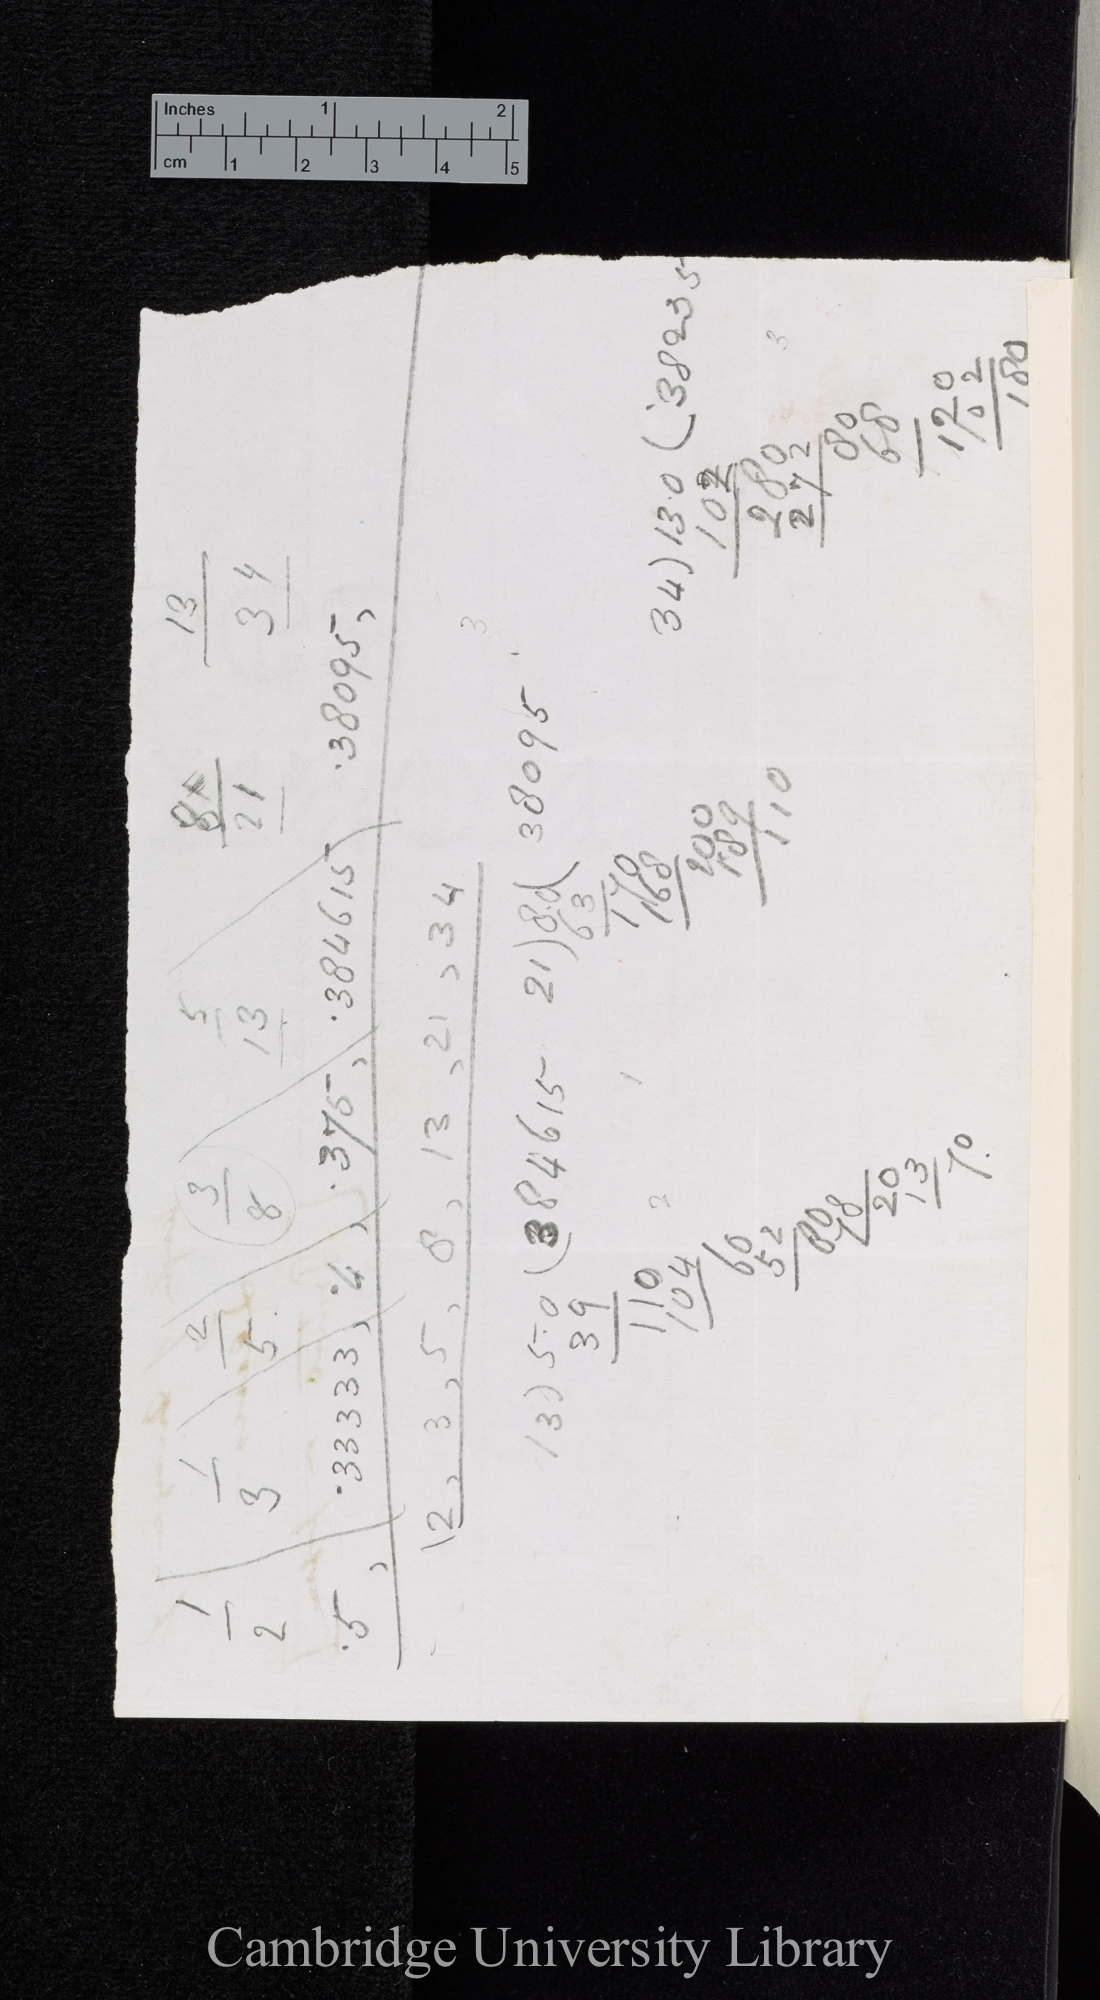 Inches 1 2
cm 1 2 3 4 5
1/2 1/3 2/5 3/8 5/13 8/21 13/34
.5, .33333, .4, .375, .384615 .38095,
2, 3, 5, 8, 13, 21, 34
3
13) 5.0 (384615
39
110
104
60
52
80
78
20
13
70.
2
1
21) 8.0( 38095
63
170
168
200
189
110
34) 13.0 (.38235
102
280
272
80
68
120
102
180
3
Cambridge University Library